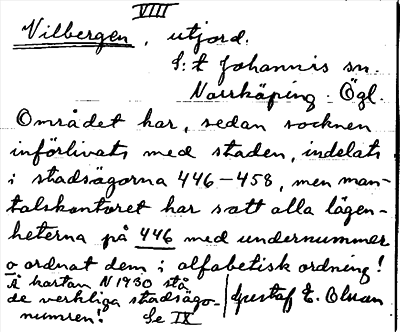 VIII
Vilbergen, utjord.
S:t Johannis sn.
Norrköping. Ögl.
Området har, sedan socknen
införlivats med staden, indelats
i stadsägorna 446-458, men man-
talskontoret har satt alla lägen-
heterna på 446 med undernummer
o ordnat dem i alfabetisk ordning!
Å kartan N 1930 stå
de verkliga stadsägo-
numren. Se IX
Gustaf E. Olsson